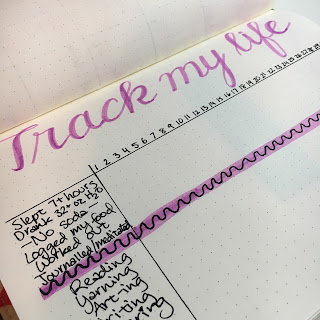 Track my life
1 2 3 4 5 6 7 8 9 10 11 12 13 14 15 16 17 18 19 20 21 22 23 24 25
Slept 7+ hours
Drank 32+ oz H2O
No soda
Logged my food
Worked out
Journalled/meditated
Reading
Yarning
Art-ing